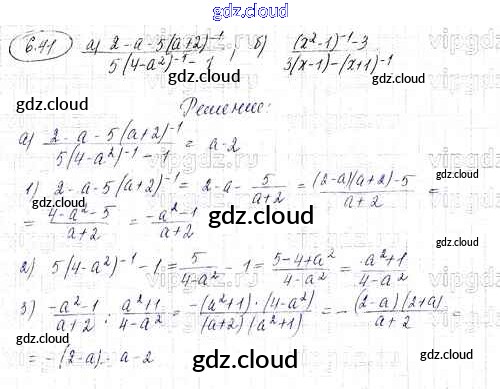 gdz.cloud
6.41 а) (2-a-5(a+2)⁻¹)/(5(4-a²)⁻¹-1); б) ((x²-1)⁻¹-3)/(3(x-1)-(x+1)⁻¹)
gdz.cloud gdz.cloud
Решение:
gdz.cloud
а) (2-a-5(a+2)⁻¹)/(5(4-a²)⁻¹-1) = a-2
1) 2-a-5(a+2)⁻¹ = 2-a-5/(a+2) = ((2-a)(a+2)-5)/(a+2) =
= (4-a²-5)/(a+2) = (-a²-1)/(a+2)
gdz.cloud
gdz.cloud
2) 5(4-a²)⁻¹-1 = 5/(4-a²) - 1 = (5-4+a²)/(4-a²) = (a²+1)/(4-a²)
3) (-a²-1)/(a+2) : (a²+1)/(4-a²) = (-(a²+1)·(4-a²))/((a+2)(a²+1)) = -((2-a)(2+a))/(a+2) =
= -(2-a) = a-2
gdz.cloud
gdz.cloud